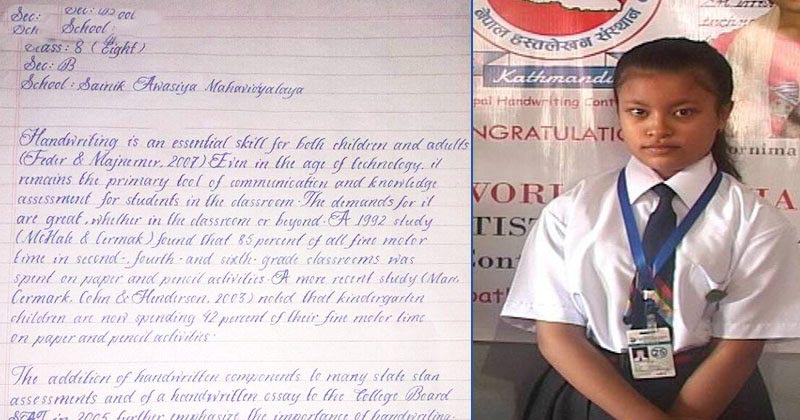 Sec:
School:
Class: 8 (Eight)
Sec: B
School: Sainik Awasiya Mahavidyalaya
Handwriting is an essential skill for both children and adults
(Feder & Majnemer, 2007) Even in the age of technology, it
remains the primary tool of communication and knowledge
assessment for students in the classroom. The demands for it
are great, whether in the classroom or beyond. A 1992 study
(McHale & Cermak) found that 85 percent of all fine motor
time in second-, fourth- and sixth-grade classrooms was
spent on paper and pencil activities. A more recent study (Marr,
Cermark, Cohn & Henderson, 2003) noted that kindergarten
children are now spending 42 percent of their fine motor time
on paper and pencil activities.
The addition of handwritten components to many state stan
assessments and of a handwritten essay to the College Board
SAT in 2005 further emphasize the importance of handwriting.
नेपाल हस्तलेखन संस्थान
Kathmandu
pal Handwriting Cont
NGRATULATIO
ornima
WORL
TIST